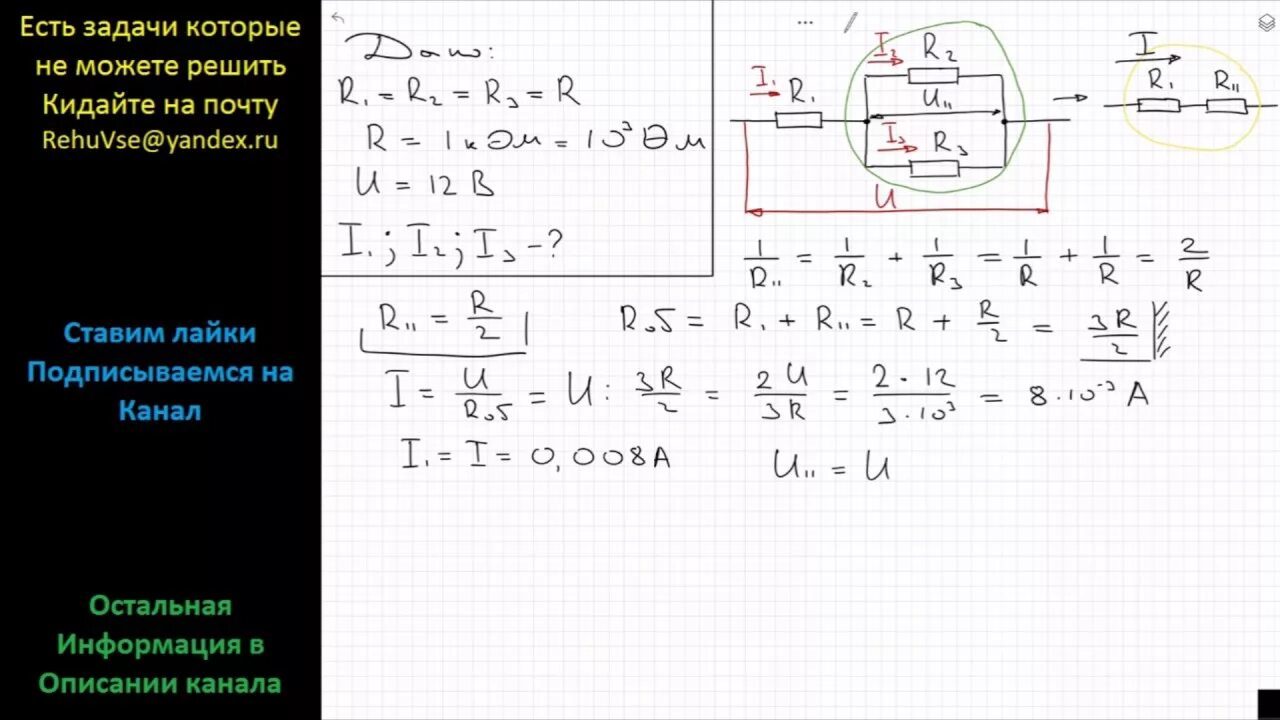 Есть задачи которые
не можете решить
Кидайте на почту
RehuVse@yandex.ru
Ставим лайки
Подписываемся на
Канал
Остальная
Информация в
Описании канала
Дано:
R₁ = R₂ = R₃ = R
R = 1кОм = 10³ Ом
U = 12 В
I₁; I₂; I₃ – ?
I₁ R₁ I₂ R₂ U₁₁ I₃ R₃ U
I R₁ R₁₁
1/R₁₁ = 1/R₂ + 1/R₃ = 1/R + 1/R = 2/R
R₁₁ = R/2 Rоб = R₁ + R₁₁ = R + R/2 = 3R/2
I = U/Rоб = U : 3R/2 = 2U/3R = 2·12/3·10³ = 8·10⁻³ А
I₁ = I = 0,008А U₁₁ = U